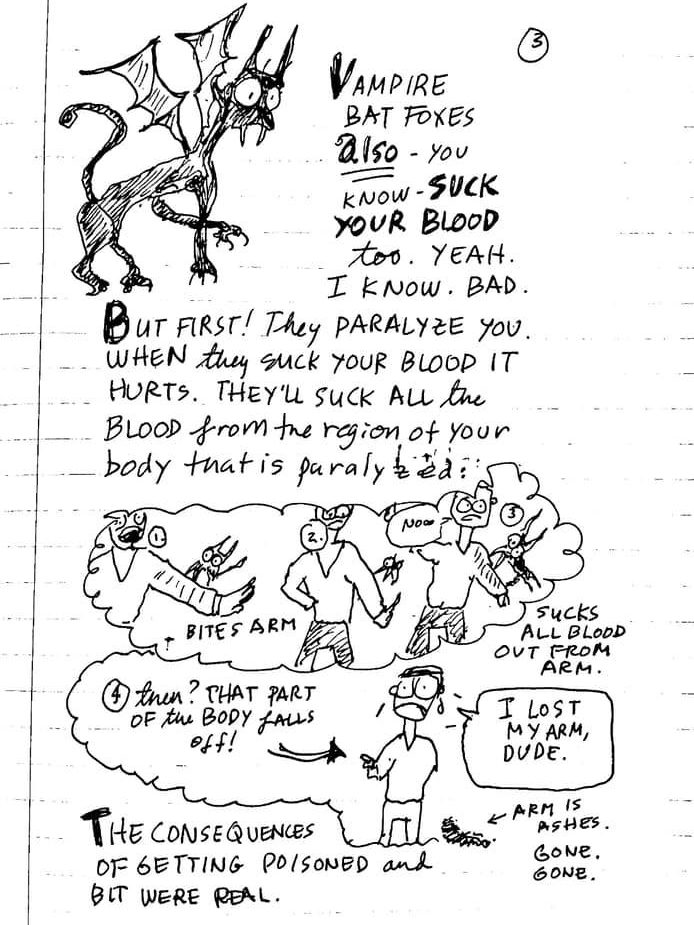 3
VAMPIRE
BAT FOXES
also - YOU
KNOW - SUCK
YOUR BLOOD
too. YEAH.
I KNOW. BAD.
BUT FIRST! They PARALYZE YOU.
WHEN they SUCK YOUR BLOOD IT
HURTS. THEY'LL SUCK ALL the
BLOOD from the region of your
body that is paralyzed:
1.
2.
NOOO
3
BITES ARM
SUCKS
ALL BLOOD
OUT FROM
ARM.
4 then? THAT PART
OF the BODY FALLS
off!
I LOST
MY ARM,
DUDE.
ARM IS
ASHES.
GONE.
GONE.
THE CONSEQUENCES
OF GETTING POISONED and
BIT WERE REAL.